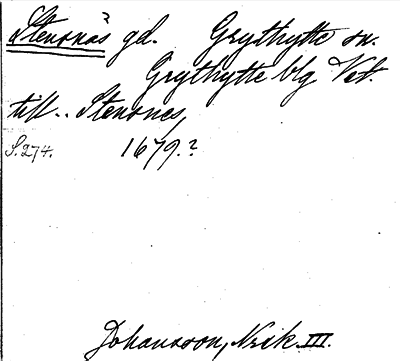 Stenonäs? gd. Grythytte sn.
Grythytte blg Vet.
till.. Stenones,
S.274. 1679.?
Johansson, Noik. III.